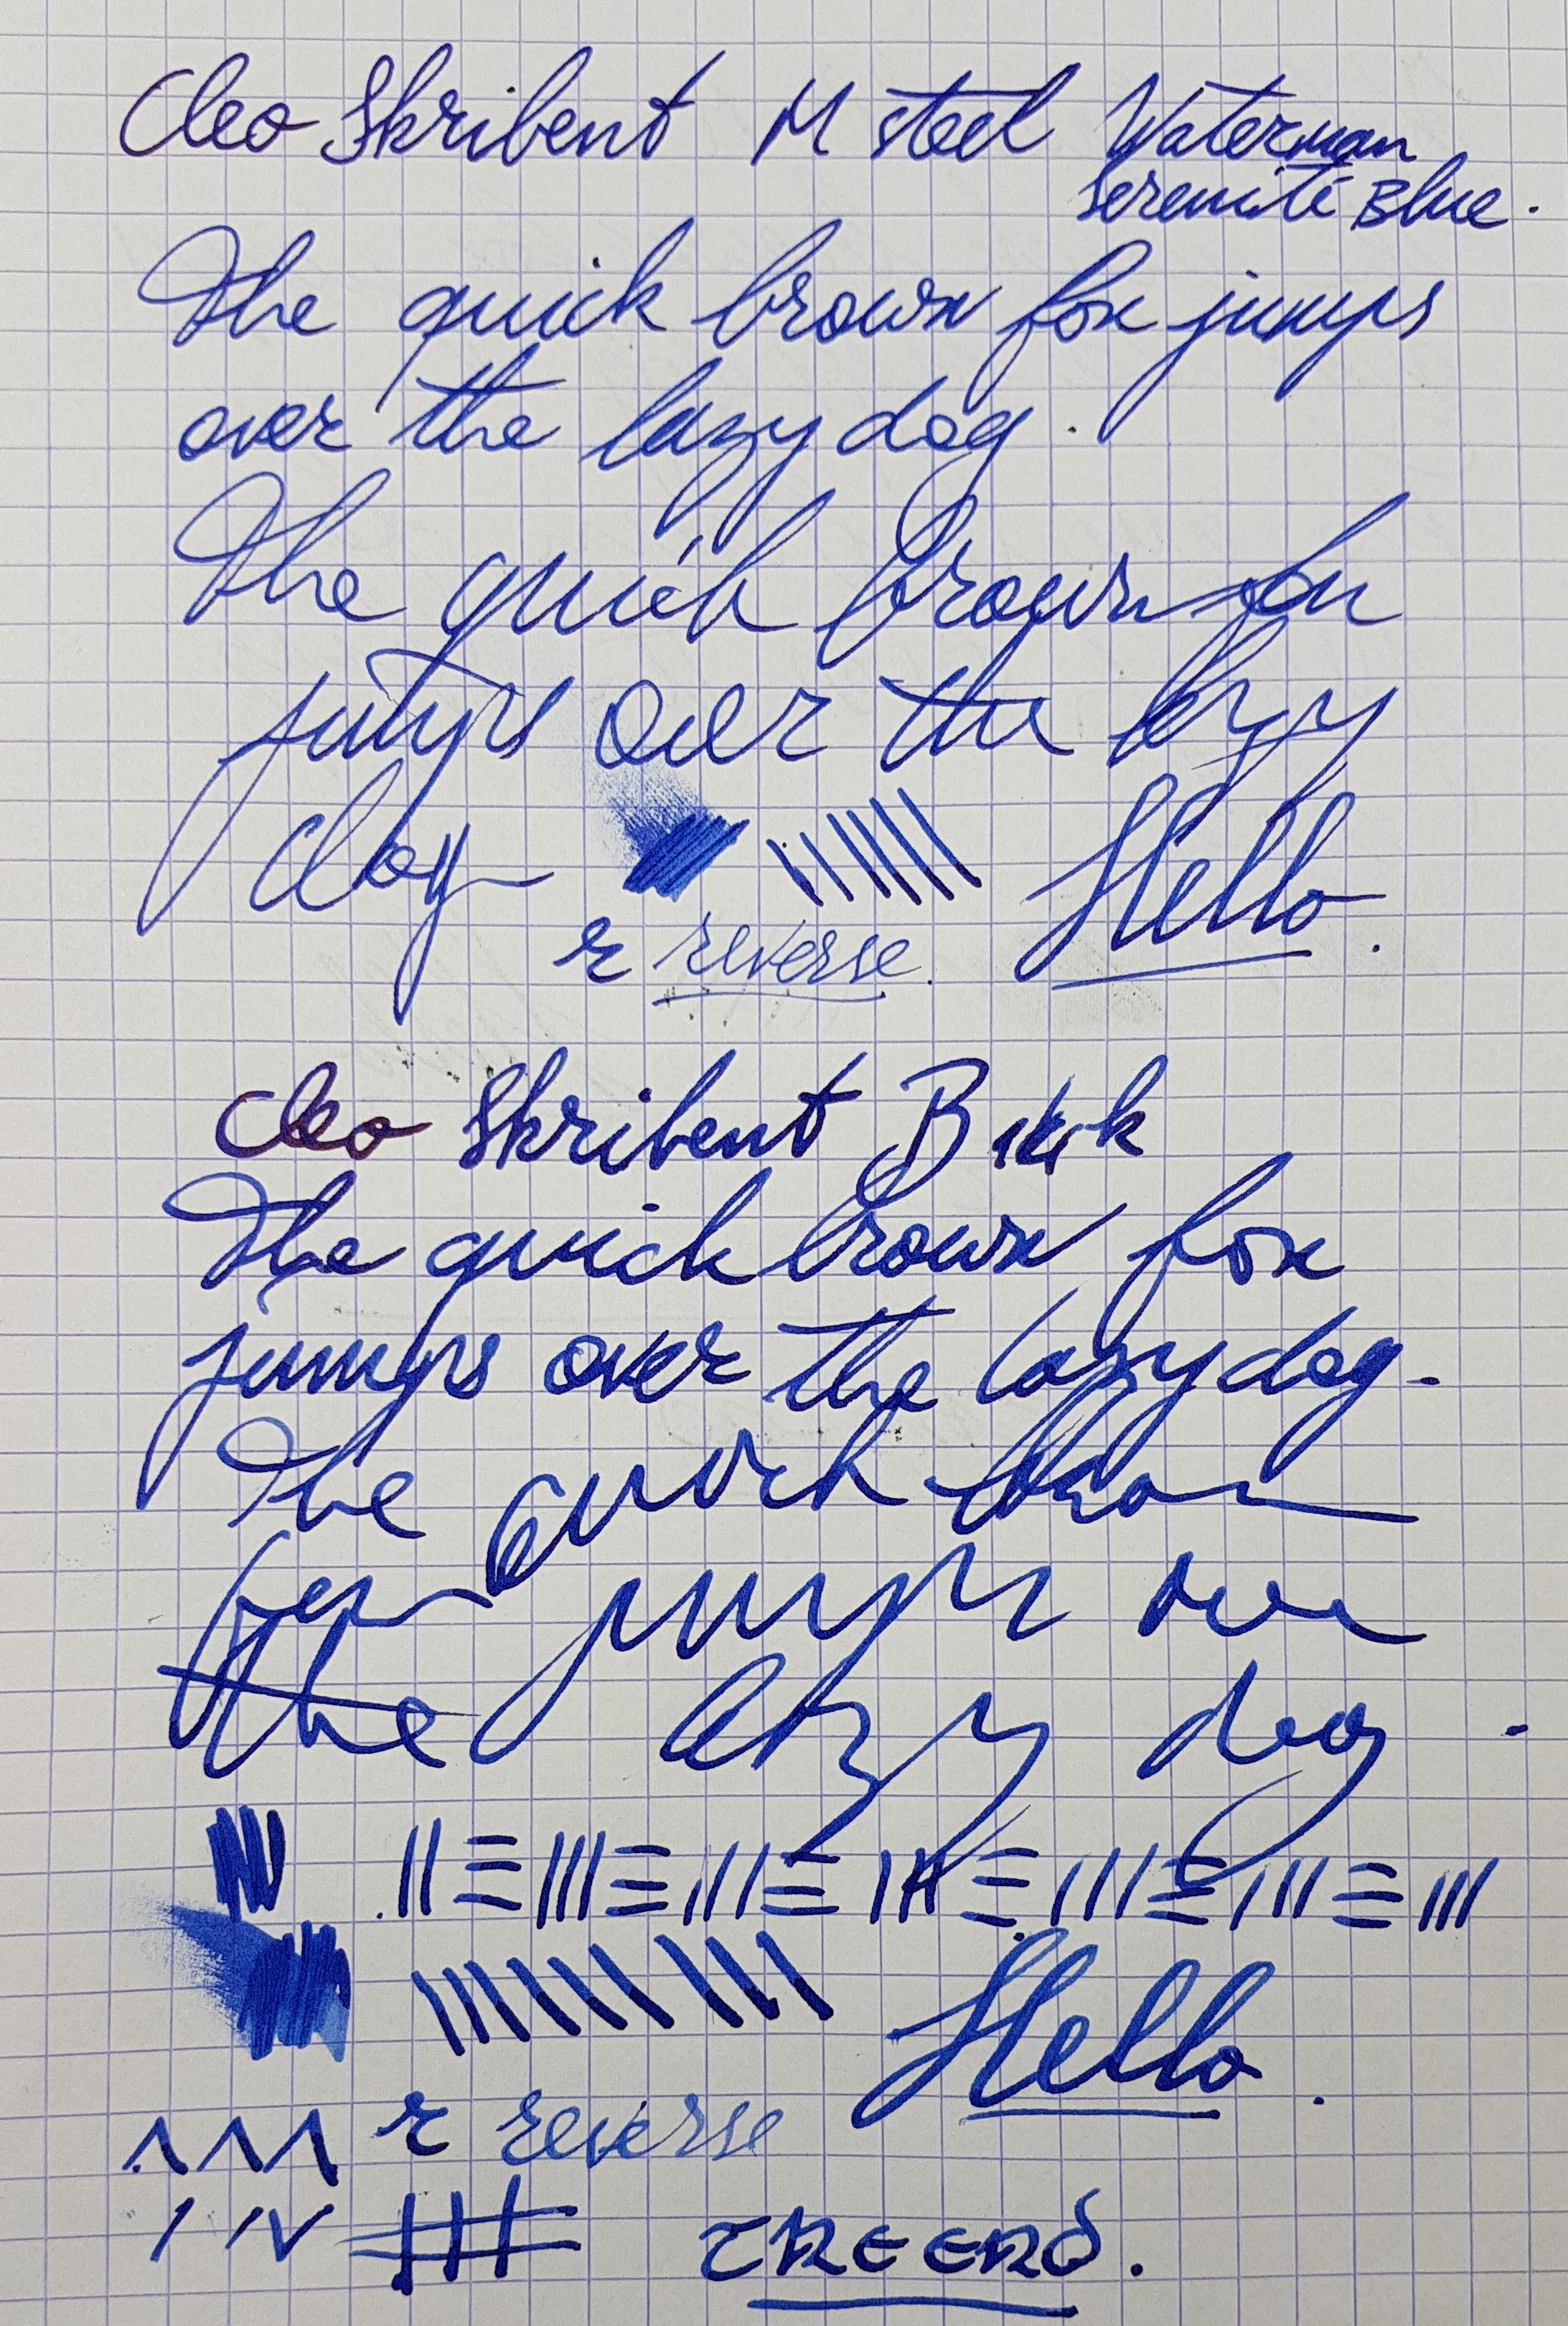 Cleo Skribent M steel Waterman
Serenité Blue.
The quick brown fox jumps
over the lazy dog.
The quick brown fox
jumps over the lazy
dog
Hello.
r reverse.
Cleo Skribent B
The quick brown fox
jumps over the lazy dog.
The quick brown
fox jumps over
the lazy dog.
Hello.
r reverse